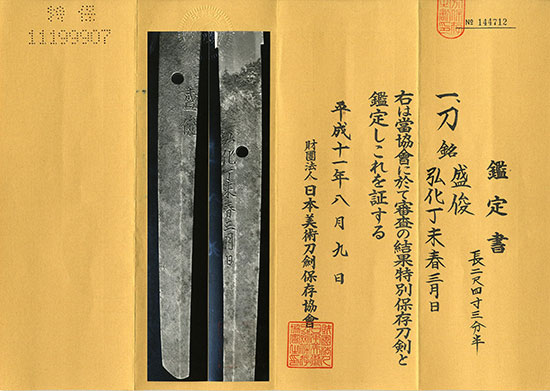 特保
11199907
№ 144712
鑑定書
一、刀 銘 盛俊
弘化丁未春三月日
長二尺四寸三分半
右は當協會に於て審査の結果特別保存刀劍と
鑑定しこれを証する
平成十一年八月九日
財團法人日本美術刀劍保存協會
盛俊
弘化丁未春三月日